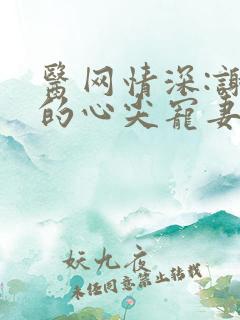 醫网情深:謝
的心尖寵妻
妖九夜
未经同意禁止转载